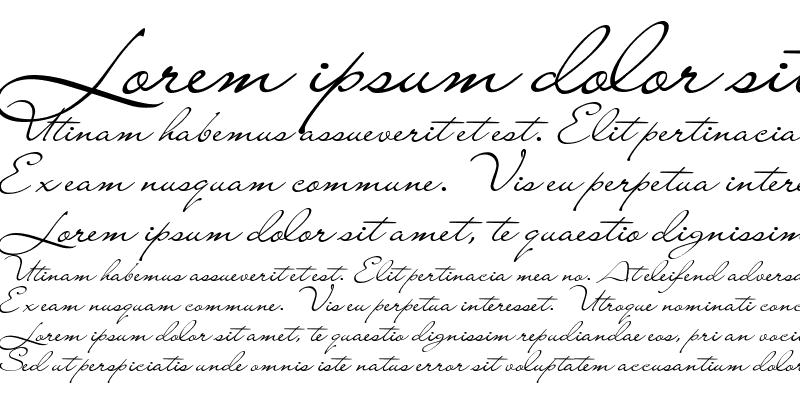 Lorem ipsum dolor sit
Utinam habemus assueverit et est. Elit pertinacia
Ex eam nusquam commune. Vis eu perpetua
Lorem ipsum dolor sit amet, te quaestio dignissim
Utinam habemus assueverit et est. Elit pertinacia mea no. At eleifend
Ex eam nusquam commune. Vis eu perpetua interesset. Utroque nominati
Lorem ipsum dolor sit amet, te quaestio dignissim repudiandae eos, pri an
Sed ut perspiciatis unde omnis iste natus error sit voluptatem accusantium